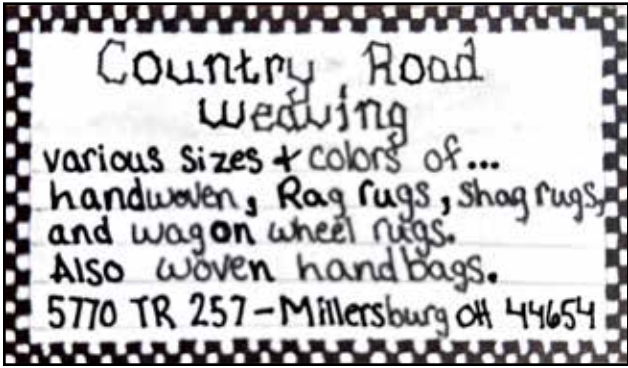 Country Road
Weaving
various sizes + colors of...
handwoven, Rag rugs, shag rugs,
and wagon wheel rugs.
Also woven handbags.
5770 TR 257-Millersburg OH 44654